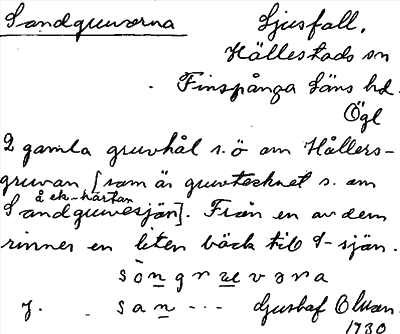 Sandgruvorna
Ljusfall,
Hällestads sn
Finspånga läns hd.
Ögl
2 gamla gruvhål s.ö om Hållers-
gruvan [som är gruvtecknet s. om
å ek-kartan
Sandgruvesjän]. Från en av dem
rinner en liten bäck till S-sjän.
sòngruvəra
J. san --- Gustaf
1930